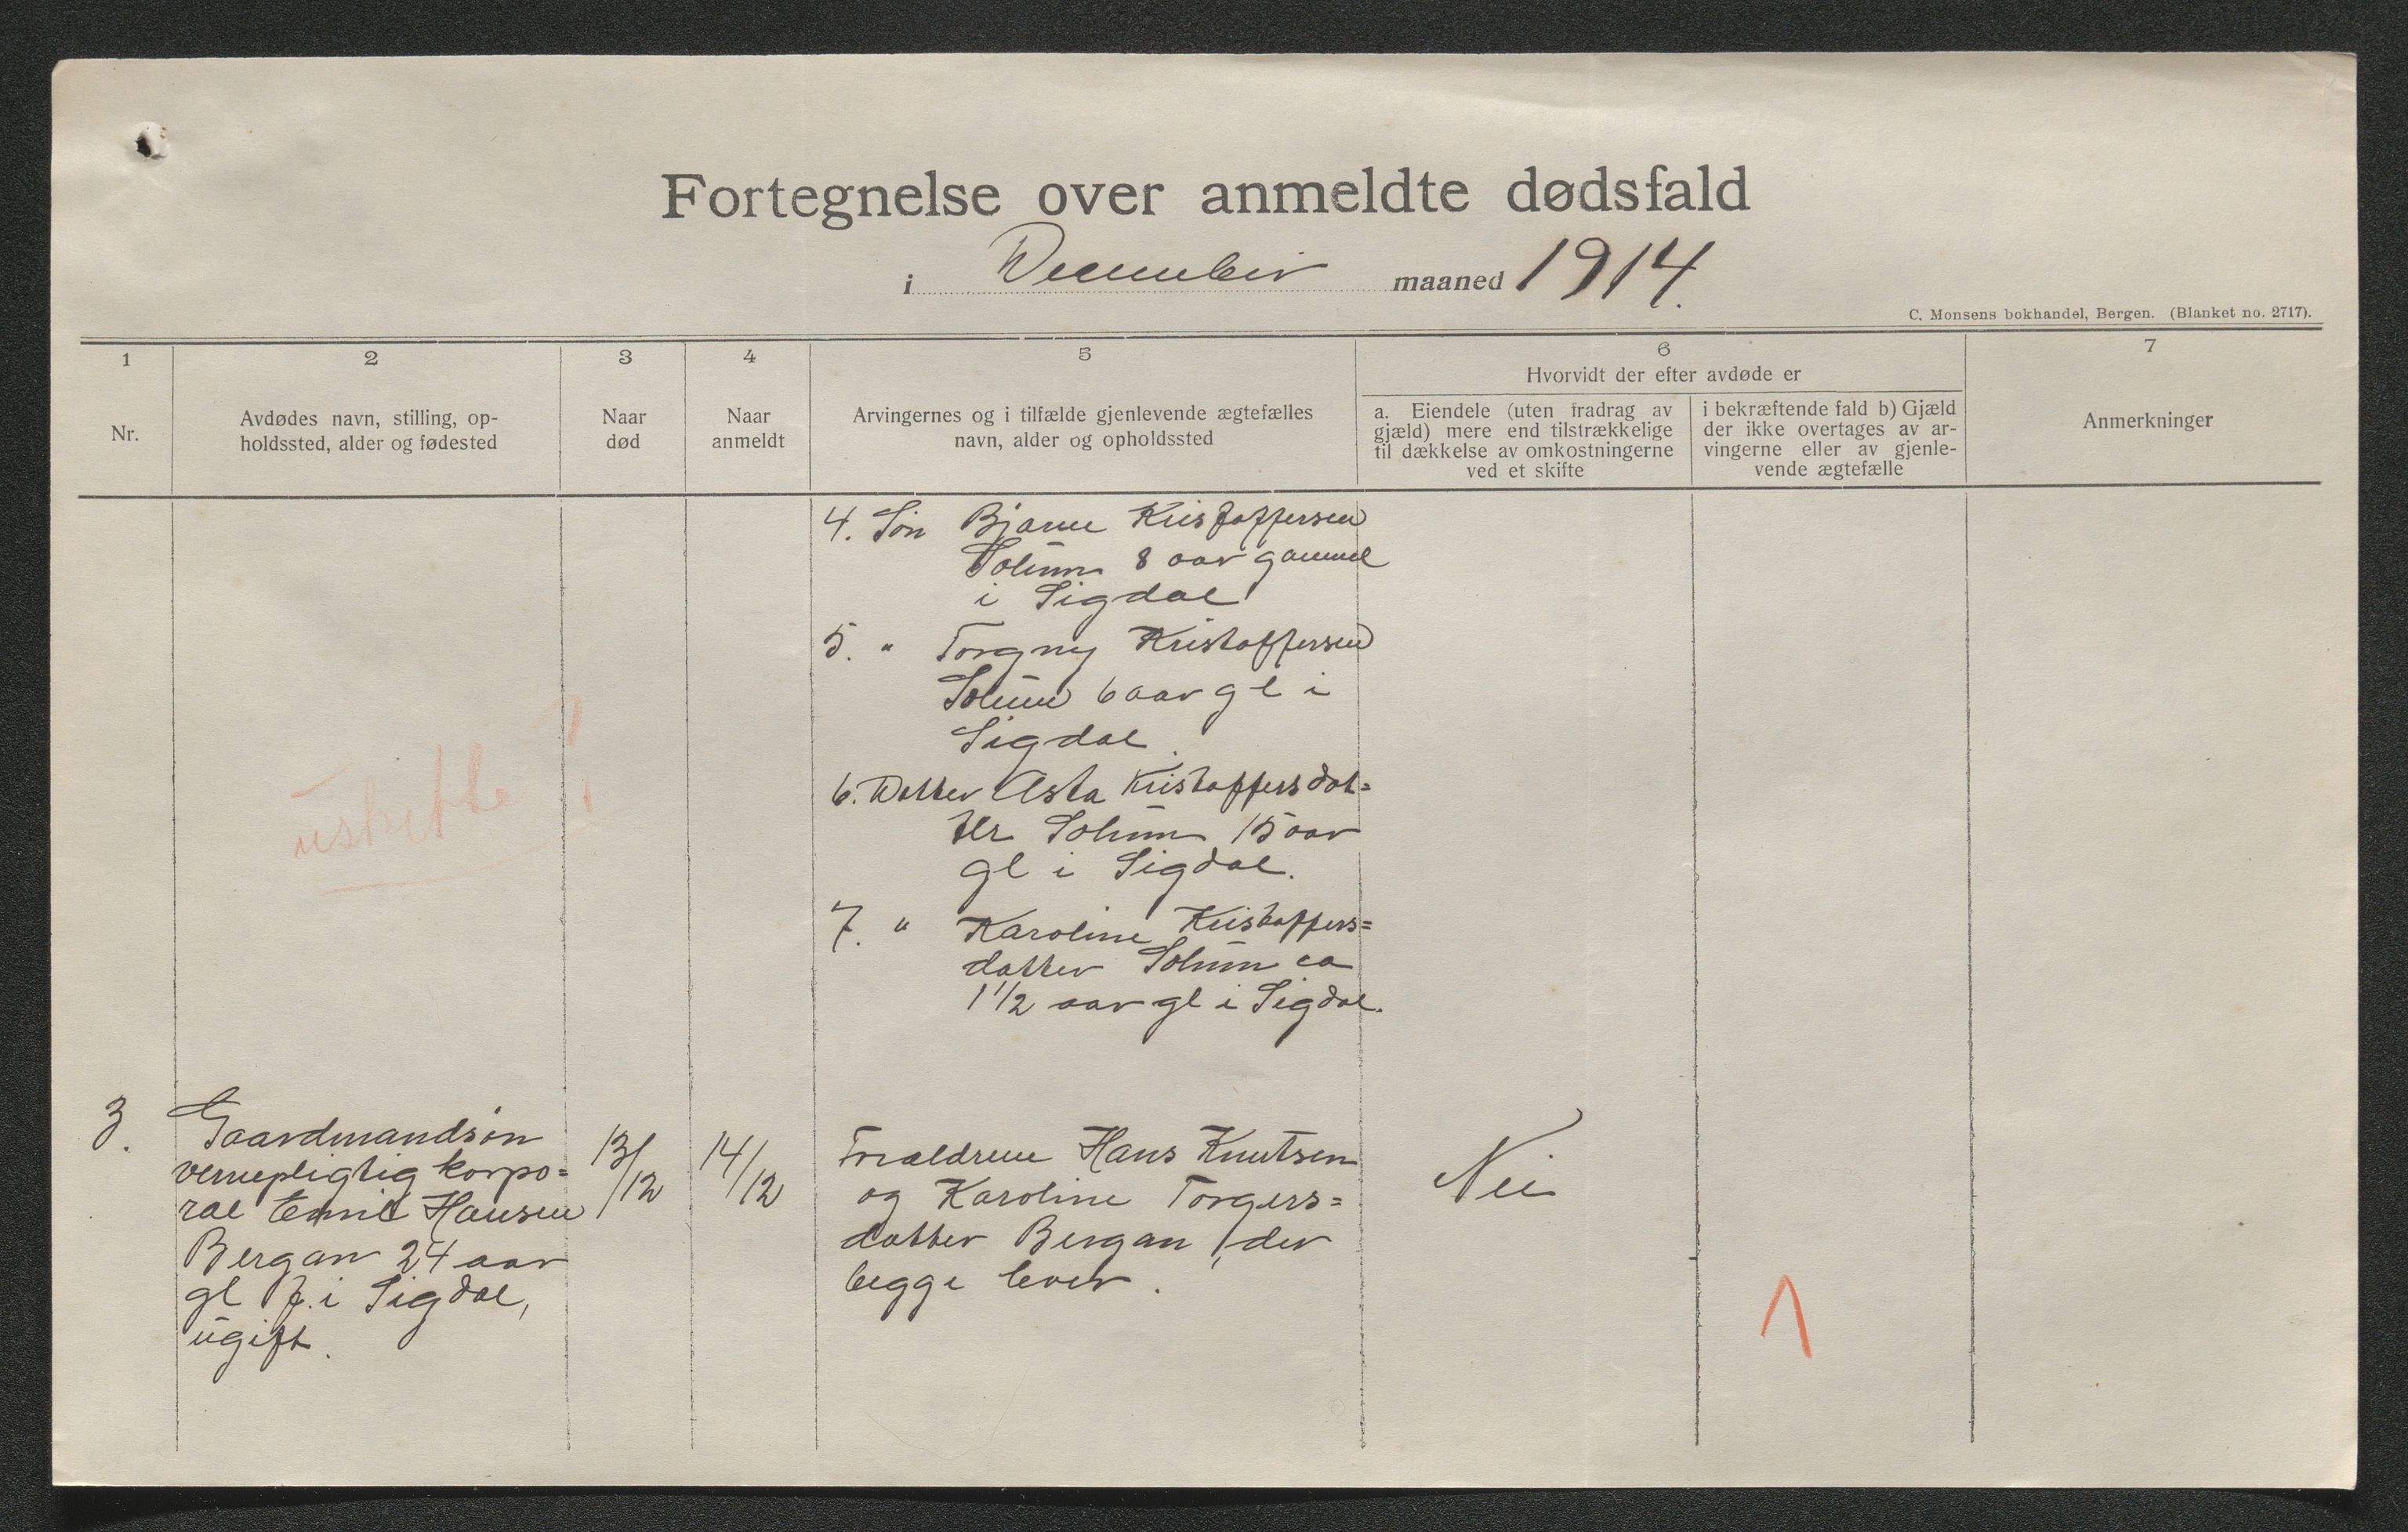 Fortegnelse over anmeldte dødsfald
i December maaned 1914.
C. Monsens bokhandel, Bergen. (Blanket no. 2717).
1
Nr.
2
Avdødes navn, stilling, op-
holdssted, alder og fødested
3
Naar
død
4
Naar
anmeldt
5
Arvingernes og i tilfælde gjenlevende ægtefælles
navn, alder og opholdssted
6
Hvorvidt der efter avdøde er
a. Eiendele (uten fradrag av
gjæld) mere end tilstrækkelige
til dækkelse av omkostningerne
ved et skifte
i bekræftende fald b) Gjæld
der ikke overtages av ar-
vingerne eller av gjenle-
vende ægtefælle
7
Anmerkninger
4. Søn Bjarne Kristoffersen
Solum 8 aar gammel
i Sigdal
5. " Torgny Kristoffersen
Solum 6 aar gl i
Sigdal.
6. Datter Asta Kristoffersdat=
ter Solum 15 aar
gl i Sigdal.
7. " Karoline Kristoffers=
datter Solum ca
1 1/2 aar gl i Sigdal.
uskifte ?
3.
Gaardmandsøn
vernepligtig korpo=
ral Emil Hansen
Bergan 24 aar
gl f. i Sigdal,
ugift.
13/12
14/12
Forældrene Hans Knutsen
og Karoline Torgers=
datter Bergan, der
begge lever.
Nei